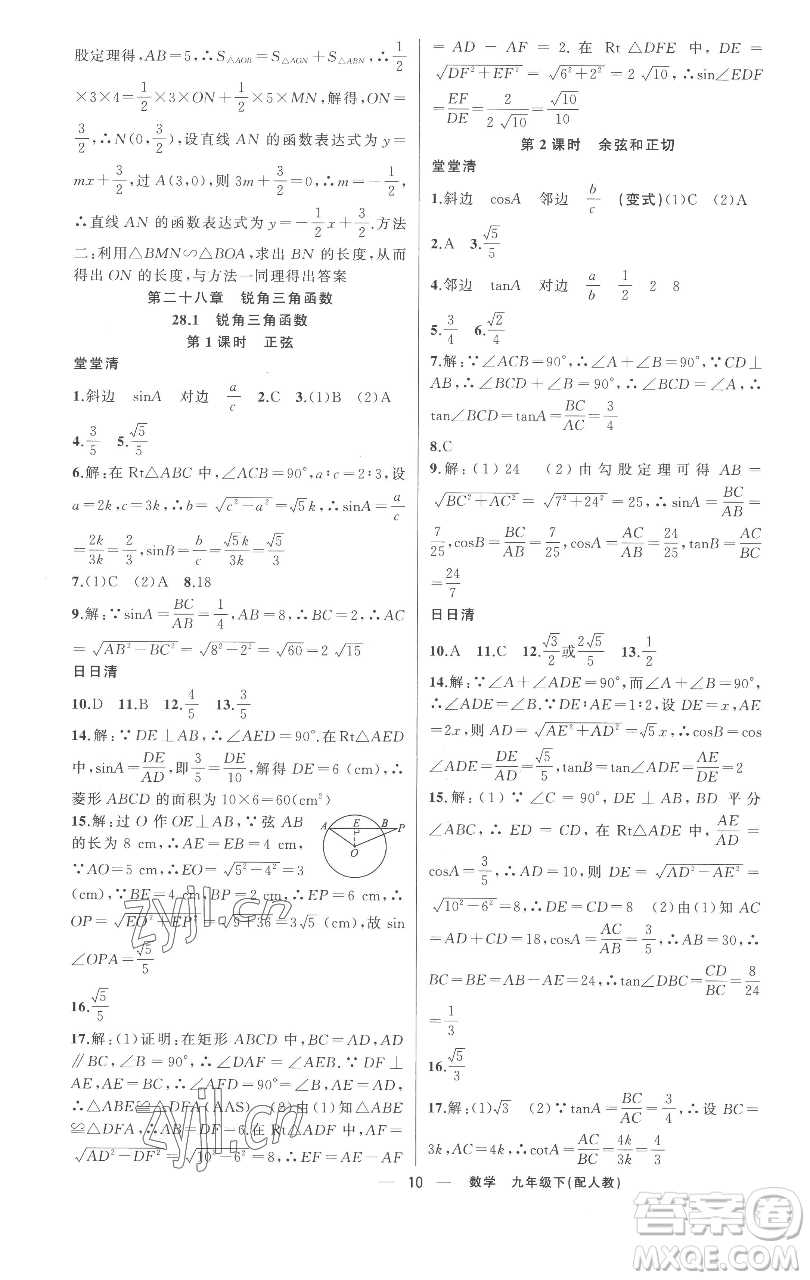 股定理得,AB=5,∴S△AOB=S△AON+S△ABN,∴1/2
×3×4=1/2×3×ON+1/2×5×MN,解得,ON=
3/2,∴N(0,3/2),设直线 AN 的函数表达式为 y=
mx+3/2,过 A(3,0),则 3m+3/2=0,∴m=-1/2,
∴直线 AN 的函数表达式为 y=-1/2x+3/2.方法
二:利用△BMN∽△BOA,求出 BN 的长度,从而
得出 ON 的长度,与方法一同理得出答案
第二十八章 锐角三角函数
28.1 锐角三角函数
第 1 课时 正弦
堂堂清
1.斜边 sinA 对边 a/c 2.C 3.(1)B (2)A
4.3/5 5.√5/5
6.解:在 Rt△ABC 中,∠ACB=90°,a:c=2:3,设
a=2k,c=3k,∴b=√(c²-a²)=√5k,∴sinA=a/c
=2k/3k=2/3,sinB=b/c=√5k/3k=√5/3
7.(1)C (2)A 8.18
9.解:∵sinA=BC/AB=1/4,AB=8,∴BC=2,∴AC
=√(AB²-BC²)=√(8²-2²)=√60=2√15
日日清
10.D 11.B 12.4/5 13.3/5
14.解:∵DE⊥AB,∴∠AED=90°.在 Rt△AED
中,sinA=DE/AD,即3/5=DE/10,解得 DE=6(cm),∴
菱形 ABCD 的面积为 10×6=60(cm²)
15.解:过 O 作 OE⊥AB,∵弦 AB
的长为 8 cm,∴AE=EB=4 cm,
∵AO=5 cm,∴EO=√(5²-4²)=3
(cm),∵BE=4 cm,BP=2 cm,∴EP=6 cm,∴
OP=√(EO²+EP²)=√(9+36)=3√5(cm),故 sin
∠OPA=√5/5
A E B P
O
16.√5/5
17.解:(1)证明:在矩形 ABCD 中,BC=AD,AD
∥BC,∠B=90°,∴∠DAF=∠AEB.∵DF⊥
AE,AE=BC,∴∠AFD=90°=∠B,AE=AD,
∴△ABE≌△DFA(AAS) (2)由(1)知△ABE
≌△DFA,∴AB=DF=6.在 Rt△ADF 中,AF=
√(AD²-DF²)=√(10²-6²)=8,∴EF=AE-AF
=AD-AF=2.在 Rt△DFE 中,DE=
√(DF²+EF²)=√(6²+2²)=2√10,∴sin∠EDF
=EF/DE=2/2√10=√10/10
第 2 课时 余弦和正切
堂堂清
1.斜边 cosA 邻边 b/c (变式)(1)C (2)A
2.A 3.√5/5
4.邻边 tanA a/b 1/2 2 8
5.3/4 6.√2/4
7.解:∵∠ACB=90°,∴∠A+∠B=90°,∵CD⊥
AB,∴∠BCD+∠B=90°,∴∠BCD=∠A,∴
tan∠BCD=tanA=BC/AC=3/4
8.C
9.解:(1)24 (2)由勾股定理可得 AB=
√(BC²+AC²)=√(7²+24²)=25,∴sinA=BC/AB=
7/25,cosB=BC/AB=7/25,cosA=AC/AB=24/25,tanB=AC/BC
=24/7
日日清
10.A 11.C 12.√3/2或2√5/5 13.1/2
14.解:∵∠A+∠ADE=90°,而∠A+∠B=90°,
∴∠ADE=∠B.∵DE:AE=1:2,设 DE=x,AE
=2x,则 AD=√(AE²+AD²)=√5x,∴cosB=cos
∠ADE=DE/AD=√5/5,tanB=AE/DE=2
15.解:(1)∵∠C=90°,DE⊥AB,BD 平分
∠ABC,∴ED=CD,在 Rt△ADE 中,AE/AD=
cosA=3/5,∴AD=10,∴DE=√(AD²-AE²)=
√(10²-6²)=8,∴CD=8 (2)由(1)知:AC
=AD+CD=18,cosA=AC/AB=3/5,∴AB=30,∴
BC=BE=AB-AE=24,∴tan∠DBC=CD/BC=8/24
=1/3
16.√5/3
17.解:(1)√3 (2)∵tanA=BC/AC=3/4,∴设 BC=
3k,AC=4k,∴cotA=AC/BC=4k/3k=4/3
— 10 — 数学 九年级下(配人教)
zyjl.cn
答案圈
MXQE.COM